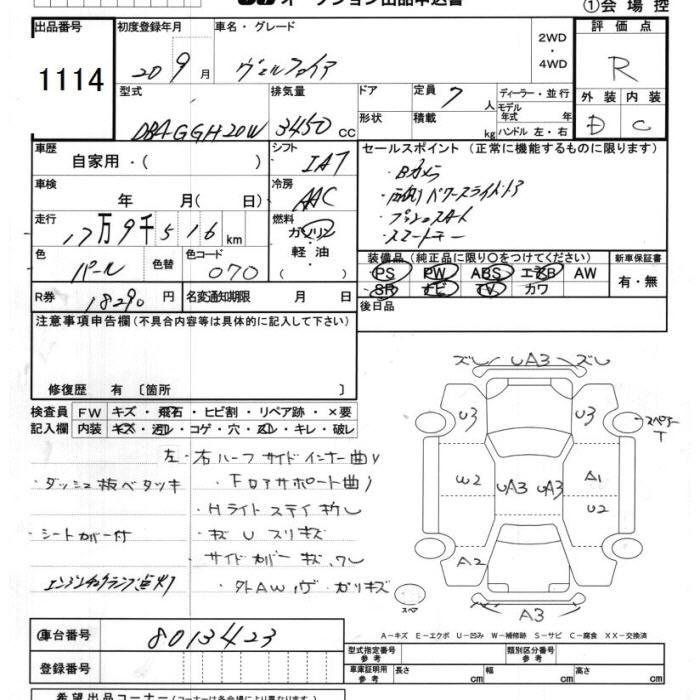 オークション出品申込書
①会場控
出品番号 初度登録年月 車名・グレード 評価点
1114 20 9月 ヴェルファイア 2WD・4WD R
外装 内装
D C
型式 排気量 ドア 定員 7人 ディーラー・並行
DBA-GGH20W 3450cc 形状 積載 kg モデル年式 年
ハンドル 左・右
車歴 自家用・( ) シフト IAT
セールスポイント (正常に機能するものに限ります)
・Bカメラ
・両側パワースライドドア
・プッシュスタート
・スマートキー
車検 年 月( 日) 冷房 AAC
走行 17万9千516km 燃料 ガソリン 軽油 ( )
色 パール 色替 色コード 070
装備品 (純正品に限り○をつけてください) 新車保証書
PS PW ABS エアB AW 有・無
SR ナビ TV カワ
R券 18290円 名変通知期限 月 日 後日品
注意事項申告欄 (不具合内容等は具体的に記入して下さい)
修復歴 有 [箇所 ]
検査員 FW キズ・飛石・ヒビ割・リペア跡・×要
記入欄 内装 キズ・汚レ・コゲ・穴・ キレ・破レ
左・右ハーフサイドインナー曲り
・ダッシュ板ベタツキ
・Fロアサポート曲り
・Hライトステイ
・シートカバー付
・キズ U スリキズ
・サイドカバーキズ、ワレ
エンジンチェックランプ点灯
・外AW ガリキズ
ズレ UA3 ズレ
U3 U3 スペアキー
T
W2 UA3 UA3 A1
U2
A2
スペア A3
A-キズ E-エクボ U-凹み W-補修跡 S-サビ C-腐食 XX-交換済
車台番号 8013423
型式指定番号 参考 類別区分番号 参考
登録番号
車庫証明用 参考 長さ cm 幅 cm 高さ cm
希望出品コーナー (コーナーは各会場により異なります)